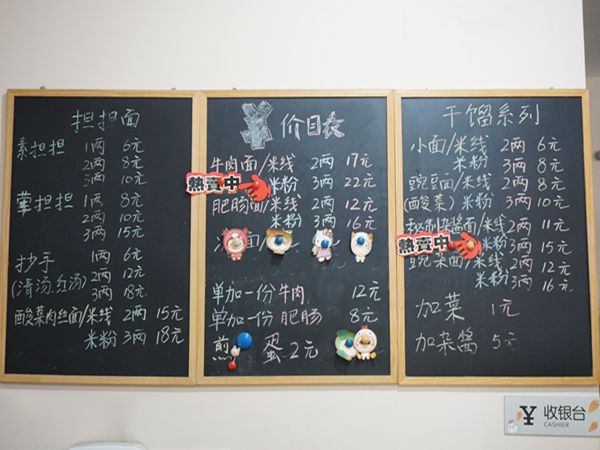 担担面
素担担 1两 6元
2两 8元
3两 10元
荤担担 1两 8元
2两 10元
3两 15元
抄手 1两 6元
(清汤.红汤) 2两 12元
3两 18元
酸菜肉丝面/米线 2两 15元
米粉 3两 18元
¥ 价目表
牛肉面/米线 2两 17元
熱賣中 米粉 3两 22元
肥肠面/米线 2两 12元
米粉 3两 16元
面/
单加一份牛肉 12元
单加一份肥肠 8元
煎 蛋 2元
干馏系列
小面/米线 2两 6元
米粉 3两 8元
豌豆面/米线 2两 8元
(酸菜) 米粉 3两 10元
秘制 酱面/米线 2两 11元
熱賣中 米粉 3两 15元
豌 面/米线 2两 12元
米粉 3两 16元
加菜 1元
加杂酱 5元
¥ 收银台
CASHIER